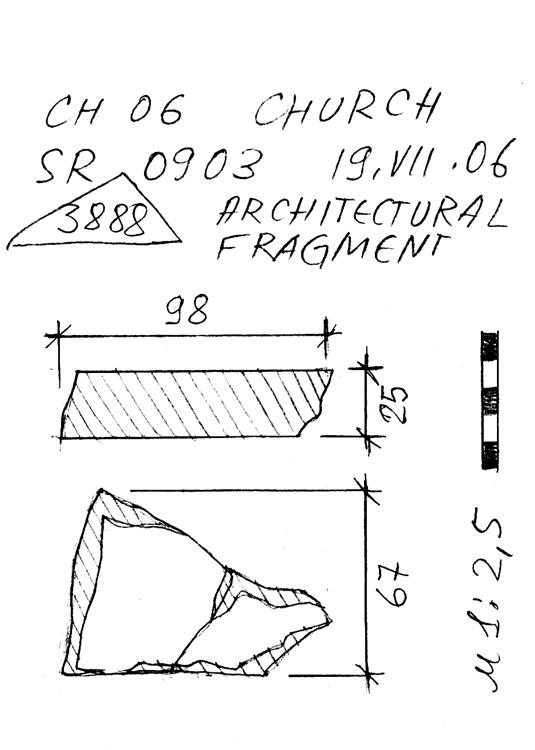 CH 06 CHURCH
SR 0903 19.VII.06
3888 ARCHITECTURAL
FRAGMENT
98
25
67
M 1:2,5